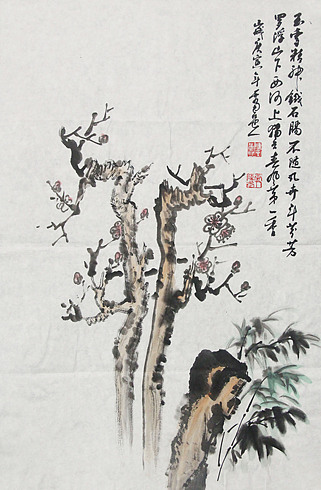 玉雪精神鐵石腸不隨凡卉鬥芬芳
羅浮山下西河上獨占春風第一香
歲庚寅年